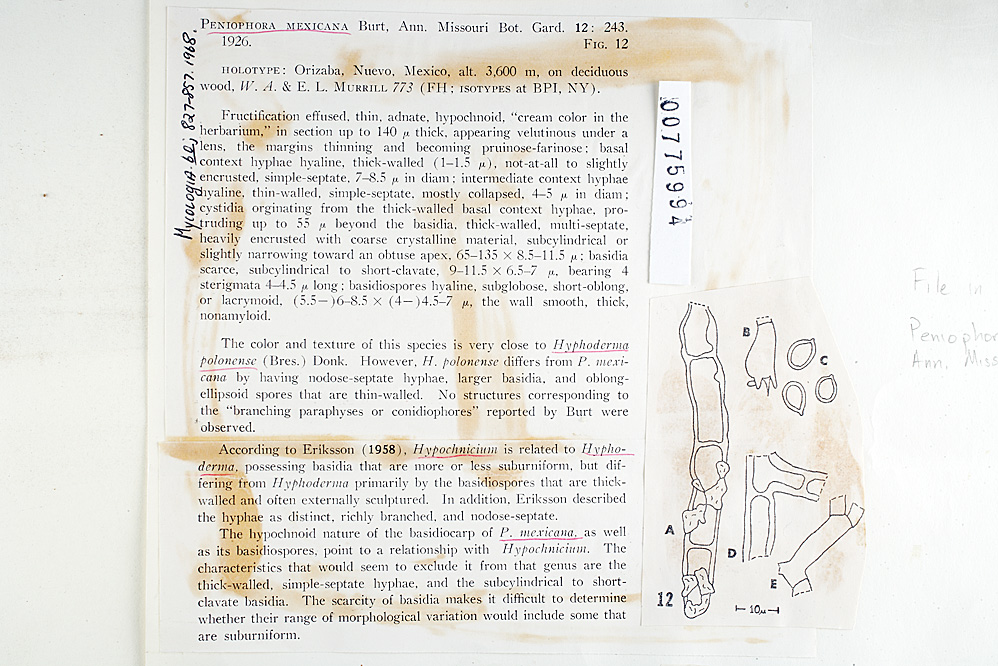 PENIOPHORA MEXICANA Burt, Ann. Missouri Bot. Gard. 12: 243.
1926. FIG. 12
HOLOTYPE: Orizaba, Nuevo, Mexico, alt. 3,600 m, on deciduous
wood, W. A. & E. L. MURRILL 773 (FH; ISOTYPES at BPI, NY).
Fructification effused, thin, adnate, hypochnoid, “cream color in the
herbarium,” in section up to 140 μ thick, appearing velutinous under a
lens, the margins thinning and becoming pruinose-farinose; basal
context hyphae hyaline, thick-walled (1–1.5 μ), not-at-all to slightly
encrusted, simple-septate, 7–8.5 μ in diam; intermediate context hyphae
hyaline, thin-walled, simple-septate, mostly collapsed, 4–5 μ in diam;
cystidia orginating from the thick-walled basal context hyphae, pro-
truding up to 55 μ beyond the basidia, thick-walled, multi-septate,
heavily encrusted with coarse crystalline material, subcylindrical or
slightly narrowing toward an obtuse apex, 65–135 × 8.5–11.5 μ; basidia
scarce, subcylindrical to short-clavate, 9–11.5 × 6.5–7 μ, bearing 4
sterigmata 4–4.5 μ long; basidiospores hyaline, subglobose, short-oblong,
or lacrymoid, (5.5–)6–8.5 × (4–)4.5–7 μ, the wall smooth, thick,
nonamyloid.
The color and texture of this species is very close to Hyphoderma
polonense (Bres.) Donk. However, H. polonense differs from P. mexi-
cana by having nodose-septate hyphae, larger basidia, and oblong-
ellipsoid spores that are thin-walled. No structures corresponding to
the “branching paraphyses or conidiophores” reported by Burt were
observed.
According to Eriksson (1958), Hypochnicium is related to Hypho-
derma, possessing basidia that are more or less suburniform, but dif-
fering from Hyphoderma primarily by the basidiospores that are thick-
walled and often externally sculptured. In addition, Eriksson described
the hyphae as distinct, richly branched, and nodose-septate.
The hypochnoid nature of the basidiocarp of P. mexicana, as well
as its basidiospores, point to a relationship with Hypochnicium. The
characteristics that would seem to exclude it from that genus are the
thick-walled, simple-septate hyphae, and the subcylindrical to short-
clavate basidia. The scarcity of basidia makes it difficult to determine
whether their range of morphological variation would include some that
are suburniform.
Mycologia 60; 827-857. 1968.
00775994
B
C
A
D
E
12
10μ
File in
Peniophor
Ann. Miss